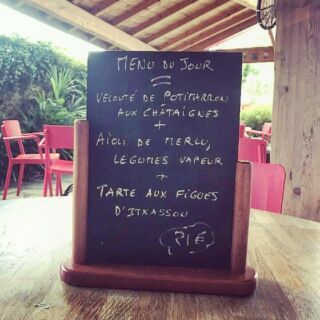 MENU DU JOUR
=
VELOUTÉ DE POTIMARRON
AUX CHÂTAIGNES
+
AÏOLI DE MERLU,
LEGUMES VAPEUR
+
TARTE AUX FIGUES
D'ITXASSOU
71€